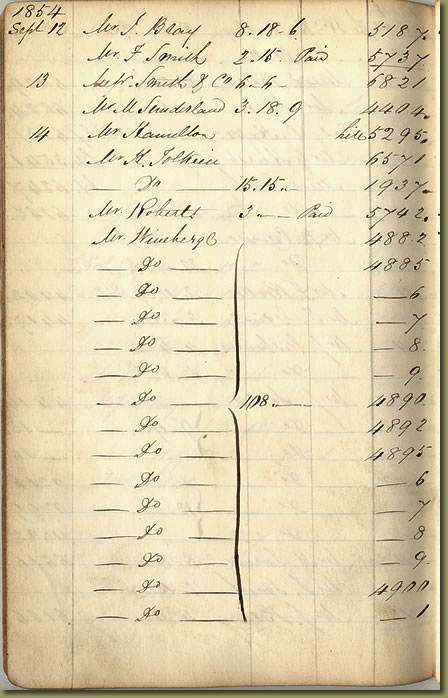 1854
Sept 12 Mr. J. Bray 8.18.6 5187.
Mr. F Smith 2.15. Paid 5737
13 Smith & Co 6.6- 6821
M Sunderland 3.18.9 4404.
14 Mr Hamilton hire 5295.
Mr. H. Tolkien 6571
— Do — 15.15.- 1937.
Mr. Roberts 3 — Paid 5742.
Mr. 4882
— Do — 4885
— Do — — 6
— Do — — 7
— Do — — 8.
— Do — — 9.
— Do — 108.— 4890
— Do — 4892
— Do — 4895
— Do — — 6
— Do — — 7
— Do — — 8
— Do — — 9.
— Do — 4900
— Do — — 1